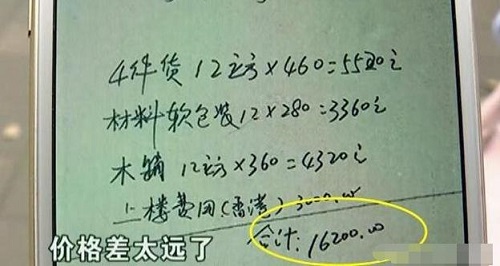 4件货 12立方×460=5520元
材料软包装12×280=3360元
木箱 12立方×360=4320元
上楼费用(香港)3000.00
合计:16200.00
价格差太远了